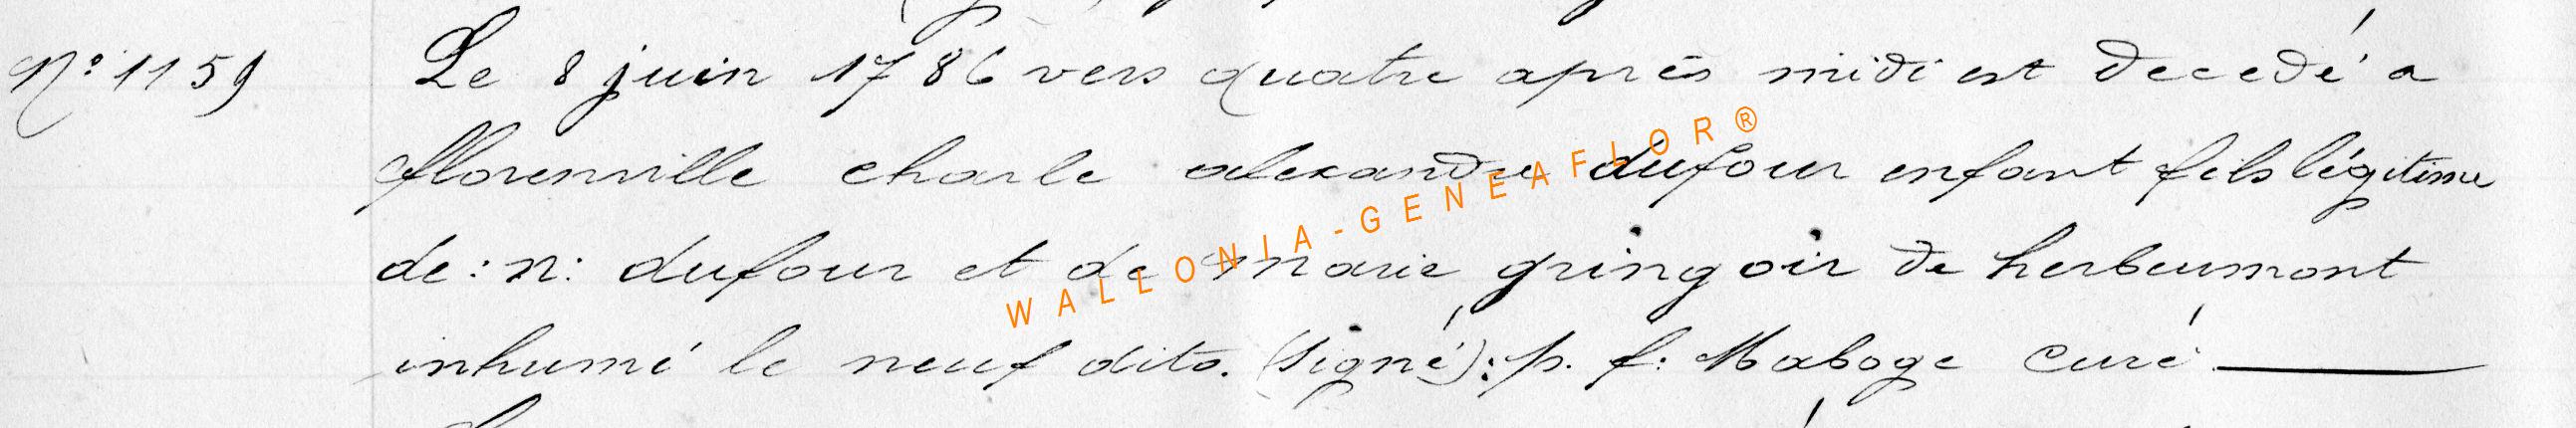 N° 1159 Le 8 juin 1786 vers quatre après midi est decedé a
florenville charle alexandre dufour enfant fils légitime
de : n : dufour et de marie gringoir de herbeumont
inhumé le neuf dito. (signé) : p. f : Maboge curé
WALLONIA-GENEAFLOR®